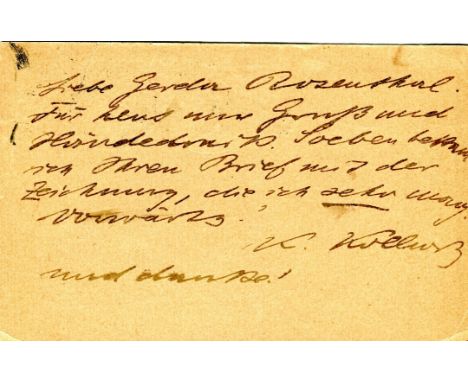 Liebe Gerda Rosenthal.
Für heut nur Gruß und
Händedruck. Soeben bekam
ich Ihren Brief mit der
Zeichnung, die ich sehr mag.
Vorwärts!
K. Kollwitz
und danke!